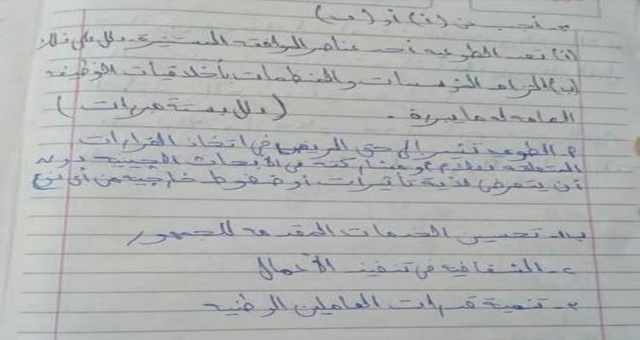 ٣- أجب عن (أ) أو (ب)
(أ) تعد الطوعية أحد عناصر الموافقة المستنيرة دلل على ذلك
(ب) التزام المؤسسات والمنظمات بأخلاقيات الوظيفة
العامة له مبررة. (دلل بستة مبررات)
٢ الطوعية تشير إلى حق المريض في اتخاذ القرارات
المتعلقة بتعليم أو مشاركته في الأبحاث الجديدة دون
أن يتعرض لأية تأثيرات أو ضغوط خارجية من أي نوع
ب- تحسين الخدمات المقدمة للجمهور
٢- الشفافية في تنفيذ الأعمال
٣- تنمية قدرات العاملين الوطنية